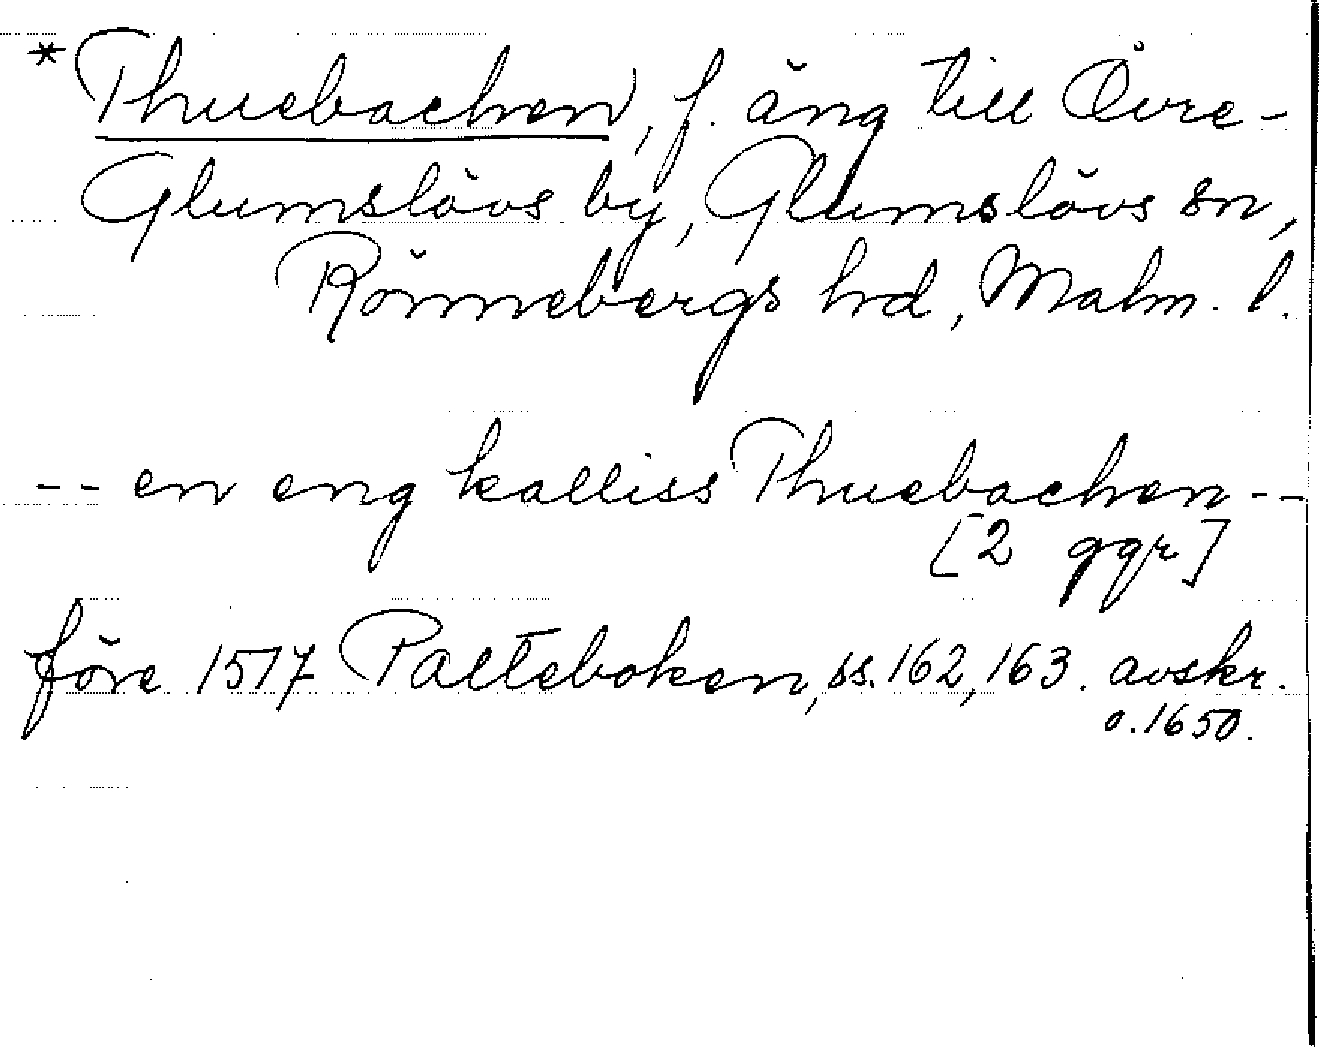 * Thuebachen, f. äng till Övre-
Glumslövs by, Glumslövs sn,
Rönnebergs hd, Malm. l.
-- en eng kalliss Thuebachen --
[2 ggr]
före 1517 Palteboken, ss. 162, 163. avskr.
o. 1650.